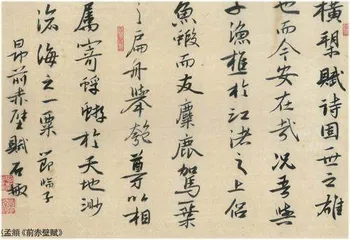 橫槊賦詩固一世之雄
也而今安在哉況吾與
子漁樵於江渚之上侶
魚蝦而友麋鹿駕一葉
之扁舟舉匏尊以相
屬寄蜉蝣於天地渺
滄海之一粟 節臨子
昂前赤壁賦 石
孟頫《前赤壁賦》